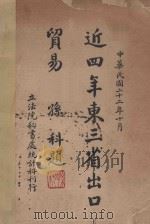 中華民國二十二年十月
近四年東三省出口
貿易 孫科題
立法院秘書處統計科刊行